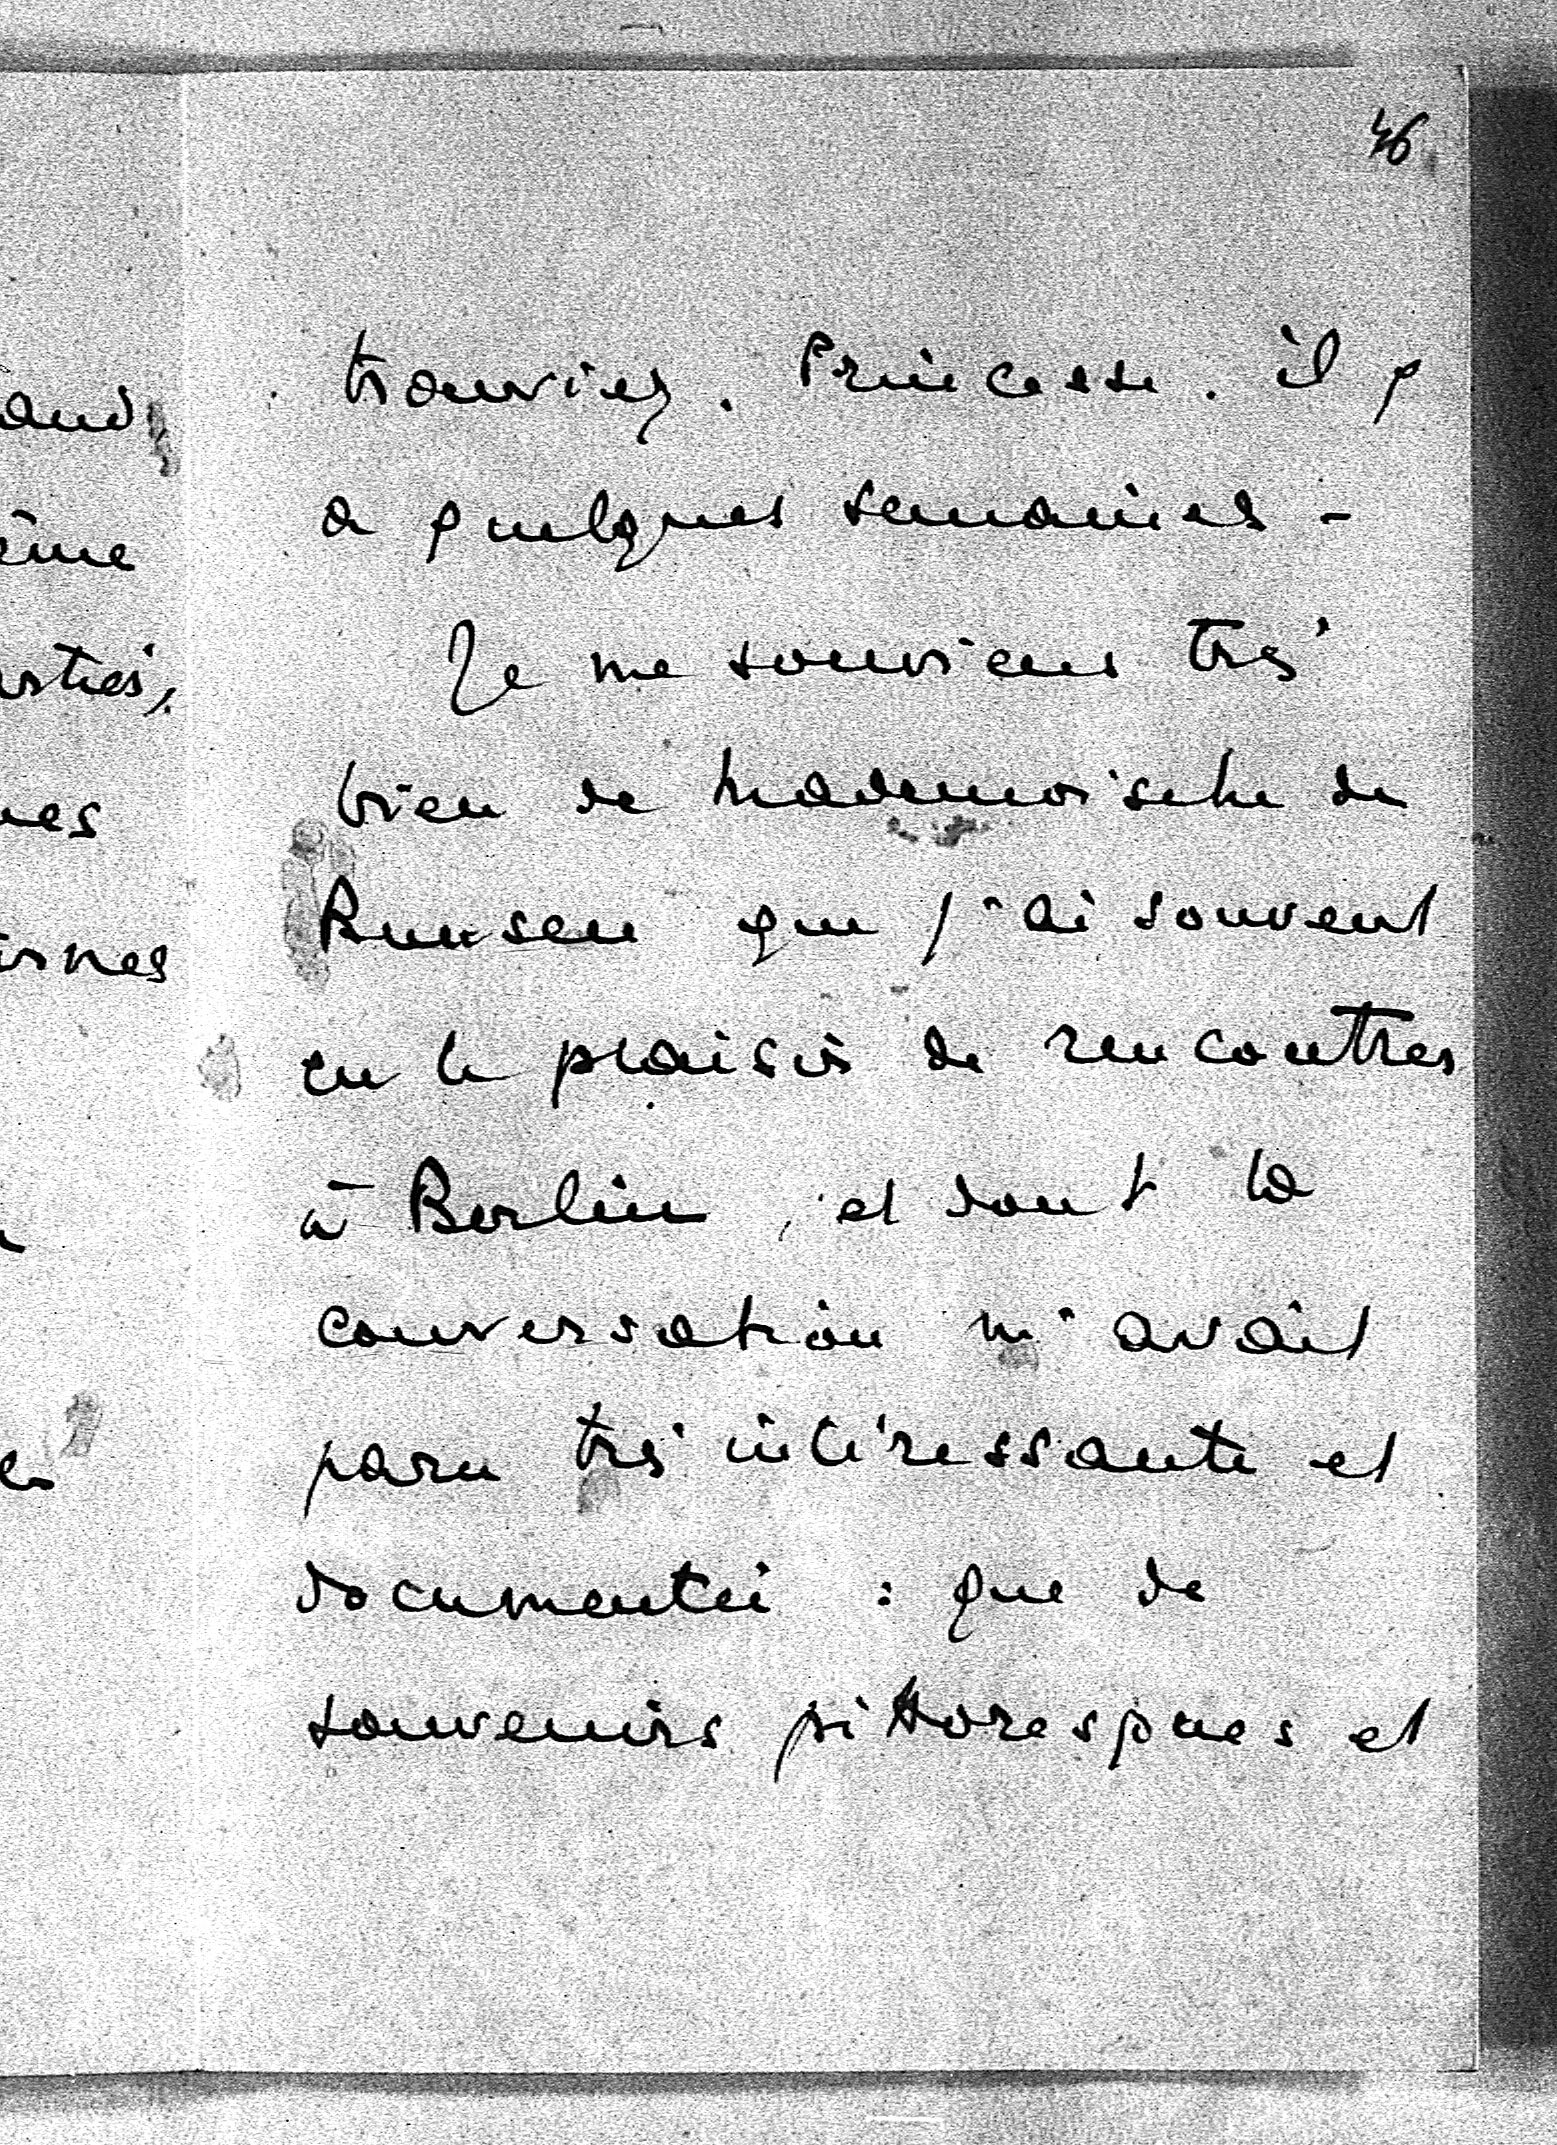 46
trouviez, Princesse, il y
a quelques semaines -
Je me souviens très
bien de Mademoiselle de
Bunsen que j'ai souvent
eu le plaisir de rencontrer
à Berlin, et dont la
conversation m'avait
paru très intéressante et
documentée : que de
souvenirs pittoresques et